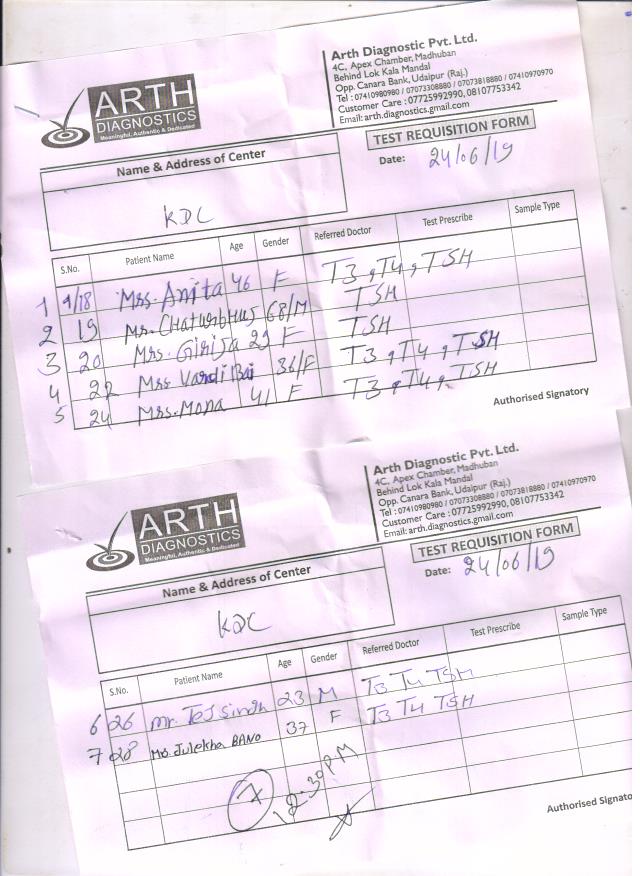 Arth Diagnostic Pvt. Ltd.
4C, Apex Chamber, Madhuban
Behind Lok Kala Mandal
Opp. Canara Bank, Udaipur (Raj.)
Tel : 07410980980 / 07073308880 / 07073818880 / 07410970970
Customer Care : 07725992990, 08107753342
Email: arth.diagnostics.gmail.com
ARTH
DIAGNOSTICS
Meaningful, Authentic & Dedicated
TEST REQUISITION FORM
Name & Address of Center
Date: 24/06/19
KDC
S.No. Patient Name Age Gender Referred Doctor Test Prescribe Sample Type
1 9/18 Mrs. Anita 46 F T3, T4, TSH
2 19 Mr. Chaturbhus 68/M TSH
3 20 Mrs. Girija 29 F TSH
4 22 Mrs Vardi Bai 36/F T3, T4, TSH
5 24 Mrs. Mona 41 F T3, T4, TSH
Authorised Signatory
Arth Diagnostic Pvt. Ltd.
4C, Apex Chamber, Madhuban
Behind Lok Kala Mandal
Opp. Canara Bank, Udaipur (Raj.)
Tel : 07410980980 / 07073308880 / 07073818880 / 07410970970
Customer Care : 07725992990, 08107753342
Email: arth.diagnostics.gmail.com
ARTH
DIAGNOSTICS
Meaningful, Authentic & Dedicated
TEST REQUISITION FORM
Name & Address of Center
Date: 24/06/19
KDC
S.No. Patient Name Age Gender Referred Doctor Test Prescribe Sample Type
6 26 Mr. Tej Singh 23 M T3 T4 TSH
7 28 Ms. Julekha BANO 37 F T3 T4 TSH
7 12:30 PM
Authorised Signato